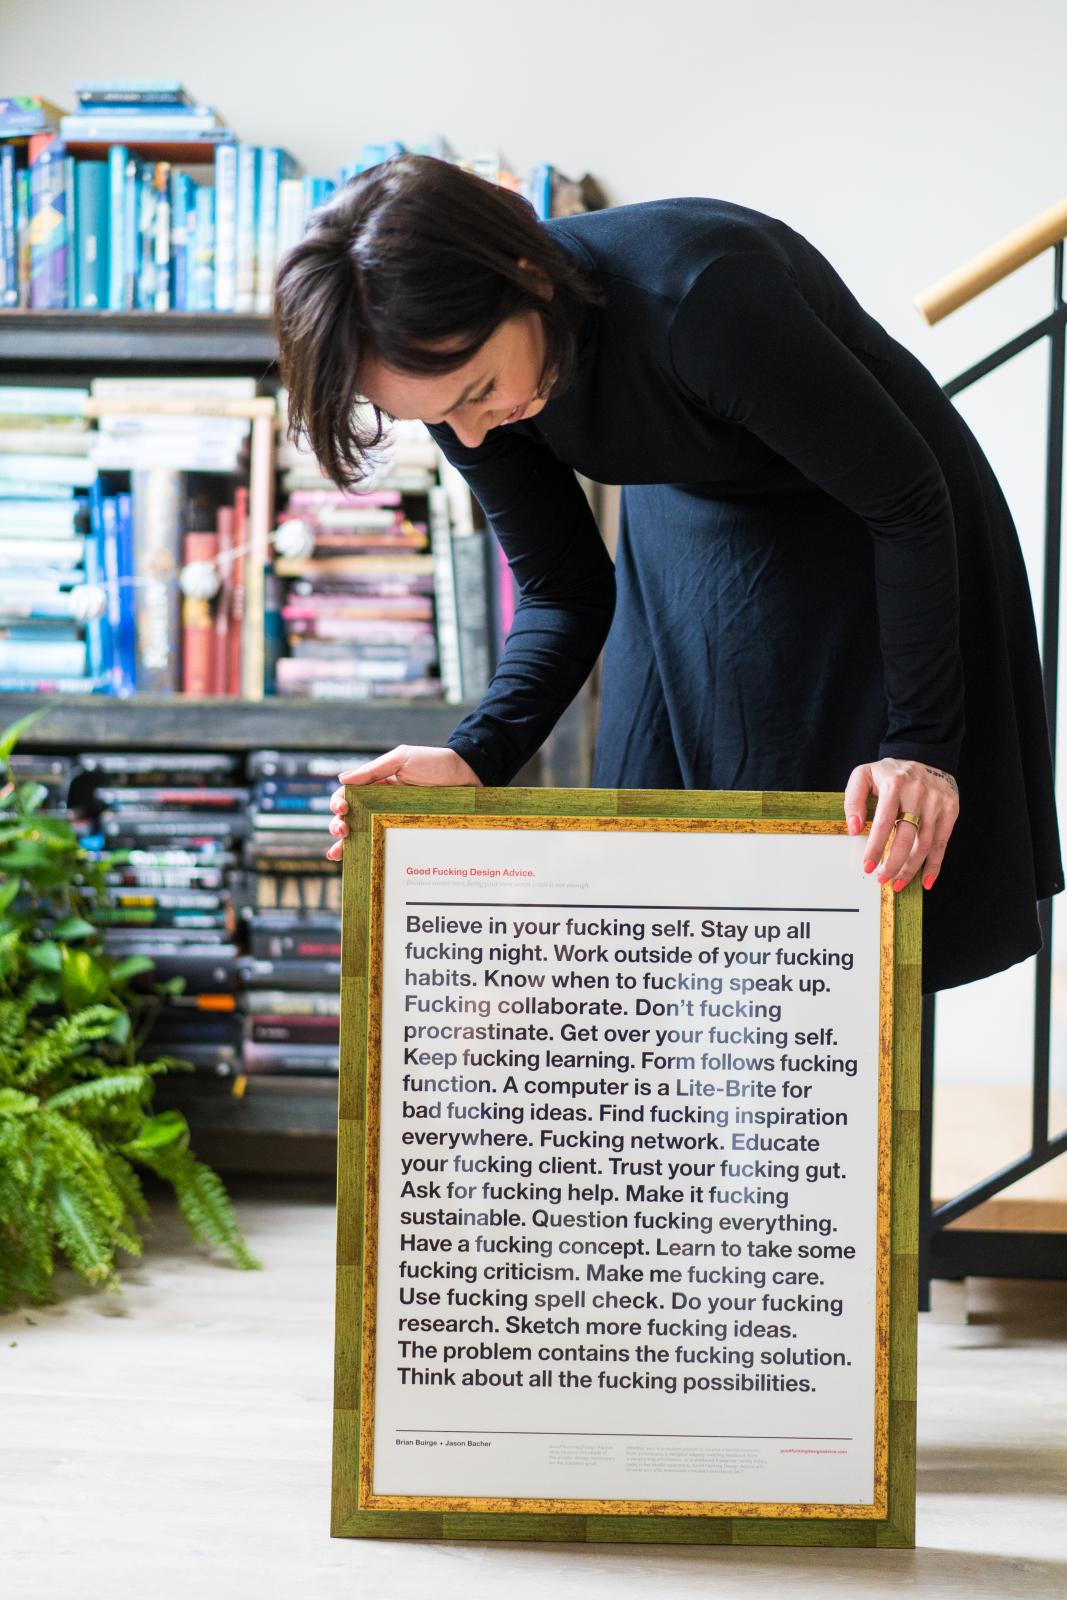 Good Fucking Design Advice.
because sometimes, being your own worst critic is not enough.
Believe in your fucking self. Stay up all
fucking night. Work outside of your fucking
habits. Know when to fucking speak up.
Fucking collaborate. Don’t fucking
procrastinate. Get over your fucking self.
Keep fucking learning. Form follows fucking
function. A computer is a Lite-Brite for
bad fucking ideas. Find fucking inspiration
everywhere. Fucking network. Educate
your fucking client. Trust your fucking gut.
Ask for fucking help. Make it fucking
sustainable. Question fucking everything.
Have a fucking concept. Learn to take some
fucking criticism. Make me fucking care.
Use fucking spell check. Do your fucking
research. Sketch more fucking ideas.
The problem contains the fucking solution.
Think about all the fucking possibilities.
Brian Buirge + Jason Bacher
goodfuckingdesignadvice.com